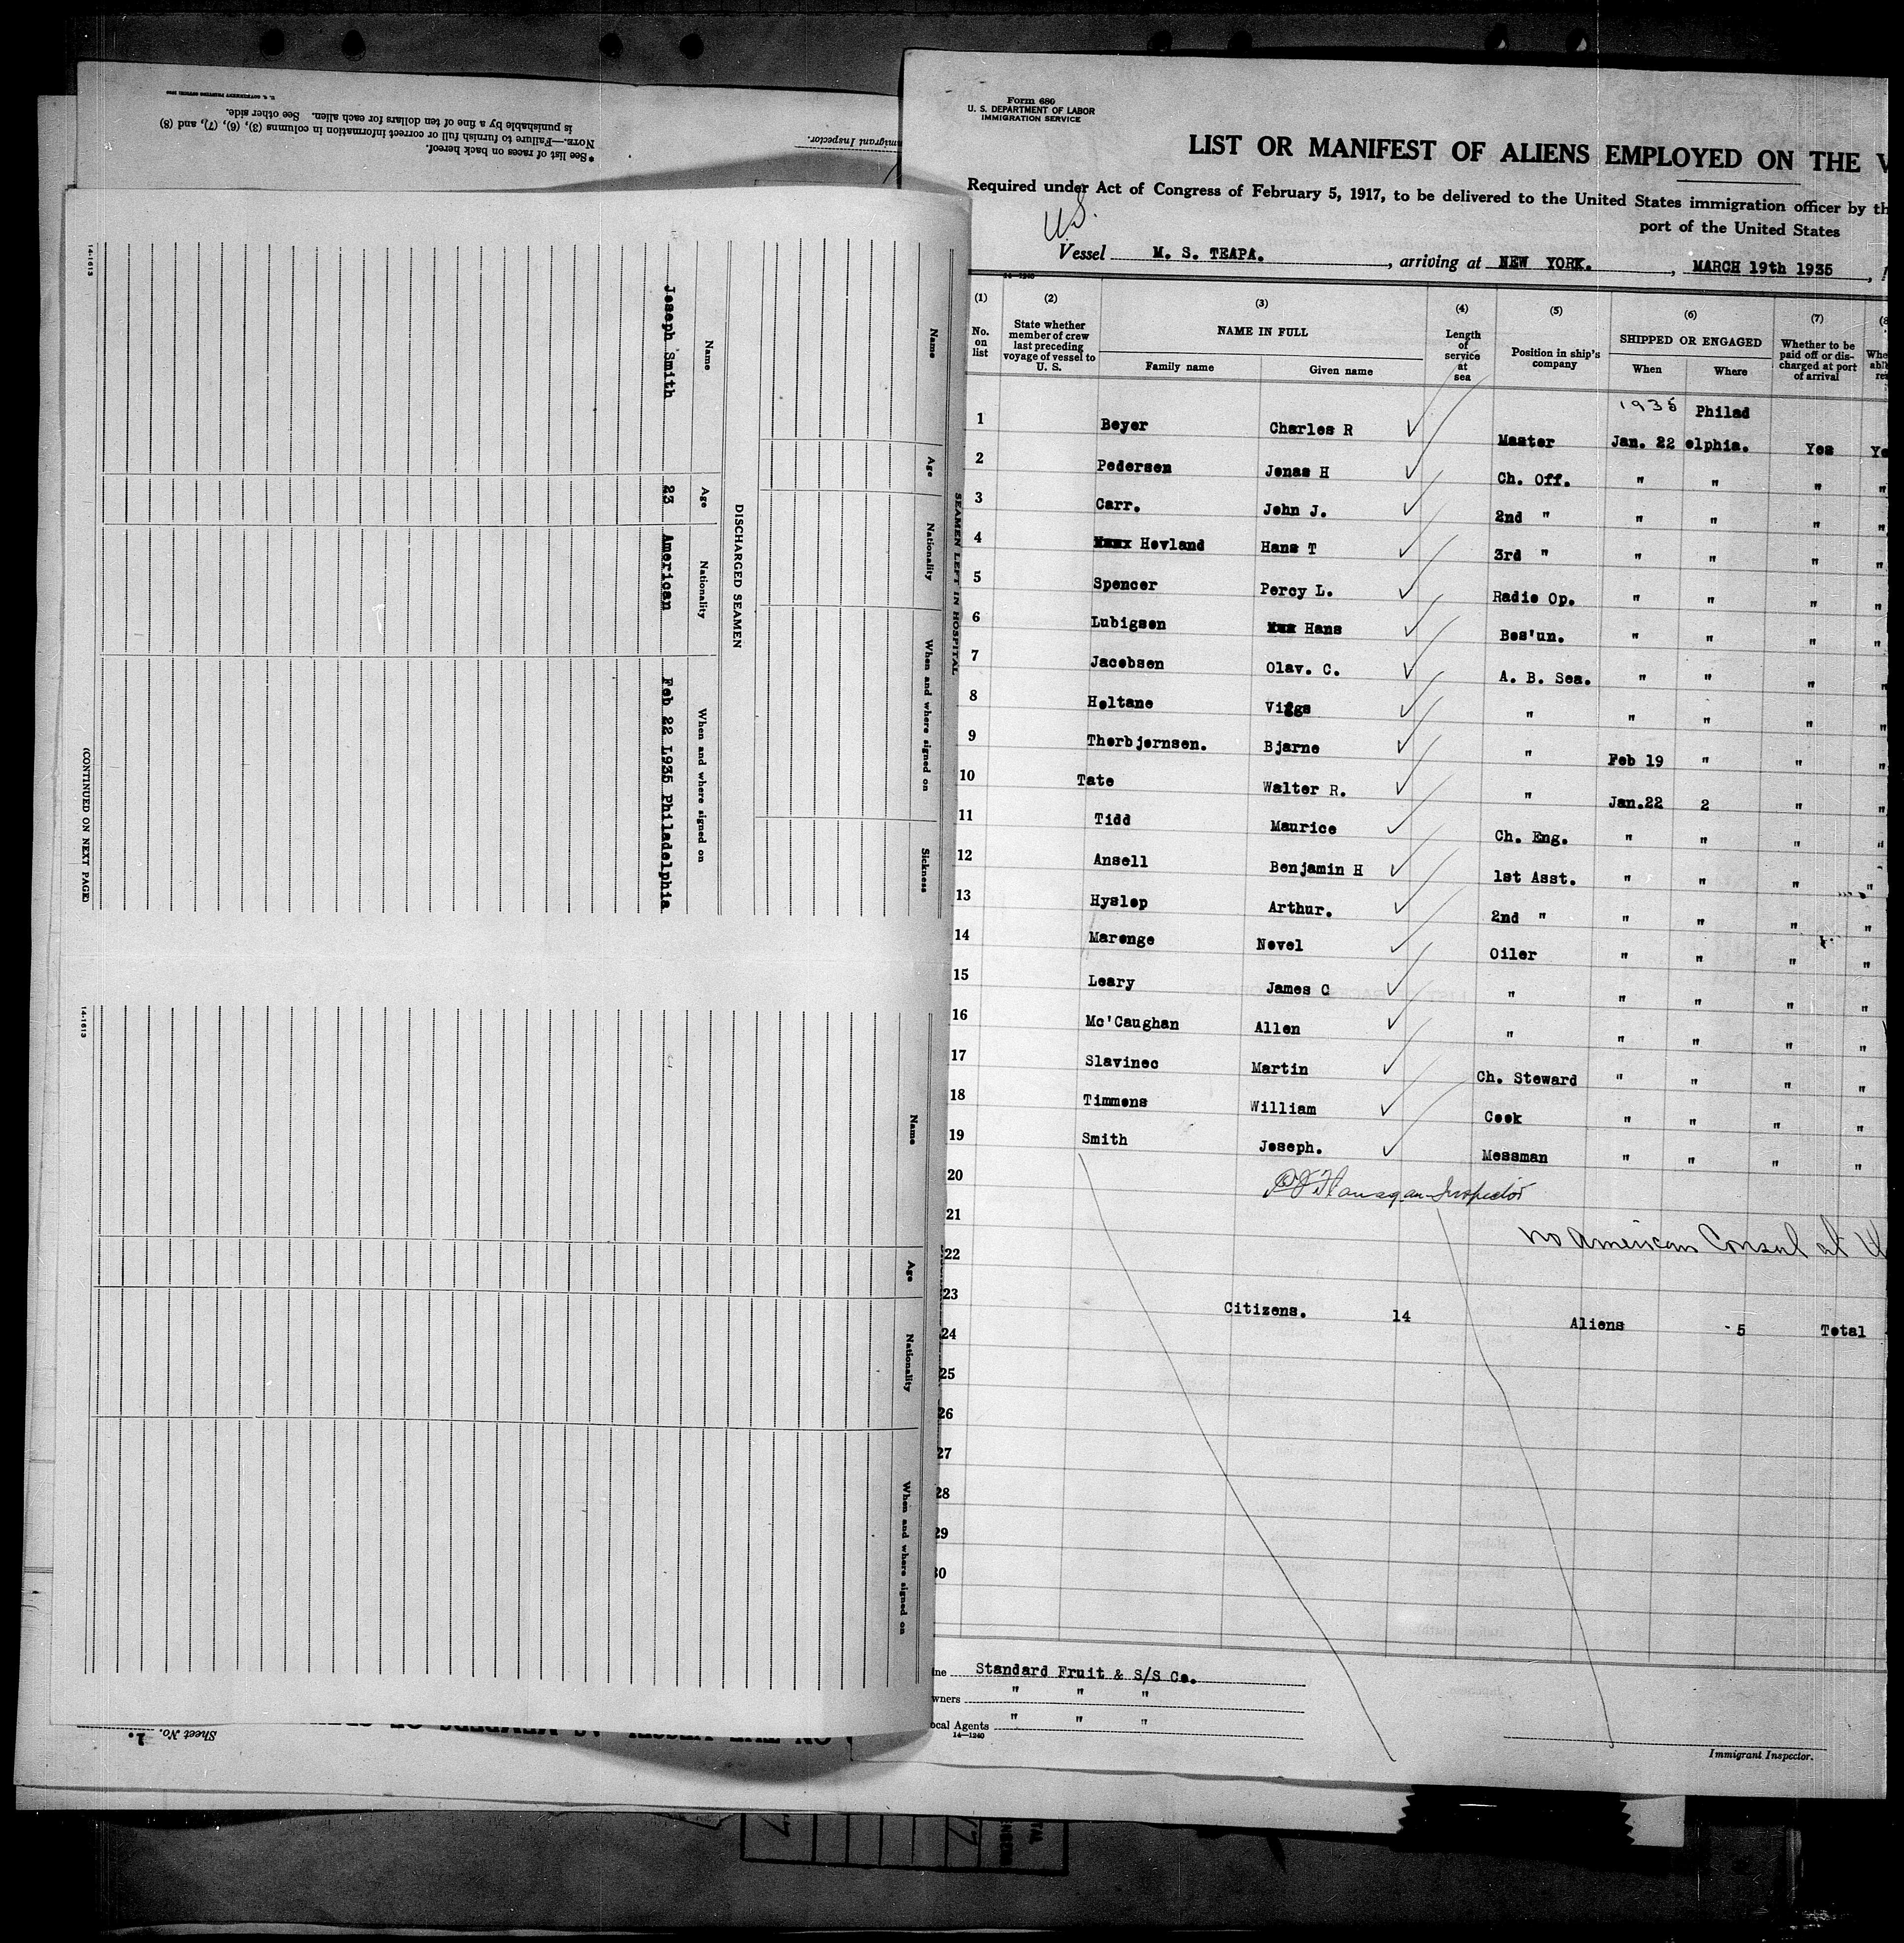 U. S. GOVERNMENT PRINTING OFFICE
*See list of races on back hereof.
NOTE.—Failure to furnish full or correct information in columns (3), (6), (7), and (8)
is punishable by a fine of ten dollars for each alien. See other side.
Immigrant Inspector.
SEAMEN LEFT IN HOSPITAL
Name Age Nationality When and where signed on Sickness
DISCHARGED SEAMEN
Name Age Nationality When and where signed on
Joseph Smith 23 American Feb 22 1935 Philadelphia
14-1613
(CONTINUED ON NEXT PAGE)
Name Age Nationality When and where signed on
14-1613
Sheet No. 1.
Form 680
U. S. DEPARTMENT OF LABOR
IMMIGRATION SERVICE
LIST OR MANIFEST OF ALIENS EMPLOYED ON THE V
Required under Act of Congress of February 5, 1917, to be delivered to the United States immigration officer by th
port of the United States
US.
Vessel M. S. TEAPA. , arriving at NEW YORK. , MARCH 19th 1935 ,
14-1240
(1) (2) (3) (4) (5) (6) (7) (8
No. on list
State whether member of crew last preceding voyage of vessel to U. S.
NAME IN FULL
Family name Given name
Length of service at sea
Position in ship's company
SHIPPED OR ENGAGED
When Where
Whether to be paid off or discharged at port of arrival
1935 Philad
1 Beyer Charles R Master Jan. 22 elphia. Yes Ye
2 Pedersen Jonas H Ch. Off. " " " "
3 Carr. John J. 2nd " " " " "
4 Hovland Hans T 3rd " " " " "
5 Spencer Percy L. Radio Op. " " " "
6 Lubigsen Hans Bos'un. " " " "
7 Jacobsen Olav. C. A. B. Sea. " " " "
8 Holtane Viggo " " " " "
9 Thorbjornsen. Bjarne " Feb 19 " " "
10 Tate Walter R. " Jan.22 2 " "
11 Tidd Maurice Ch. Eng. " " " "
12 Ansell Benjamin H 1st Asst. " " " "
13 Hyslop Arthur. 2nd " " " " "
14 Marenge Novel Oiler " " " "
15 Leary James C " " " " "
16 Mc'Caughan Allen " " " " "
17 Slavinec Martin Ch. Steward " " " "
18 Timmons William Cook " " " "
19 Smith Joseph. Messman " " " "
20
Flanagan Inspector
21
no American Consul at
22
23
Citizens. 14 Aliens 5 Total
24
25
26
27
28
29
30
ine Standard Fruit & S/S Co.
wners " " "
ocal Agents " " "
14-1240
Immigrant Inspector.